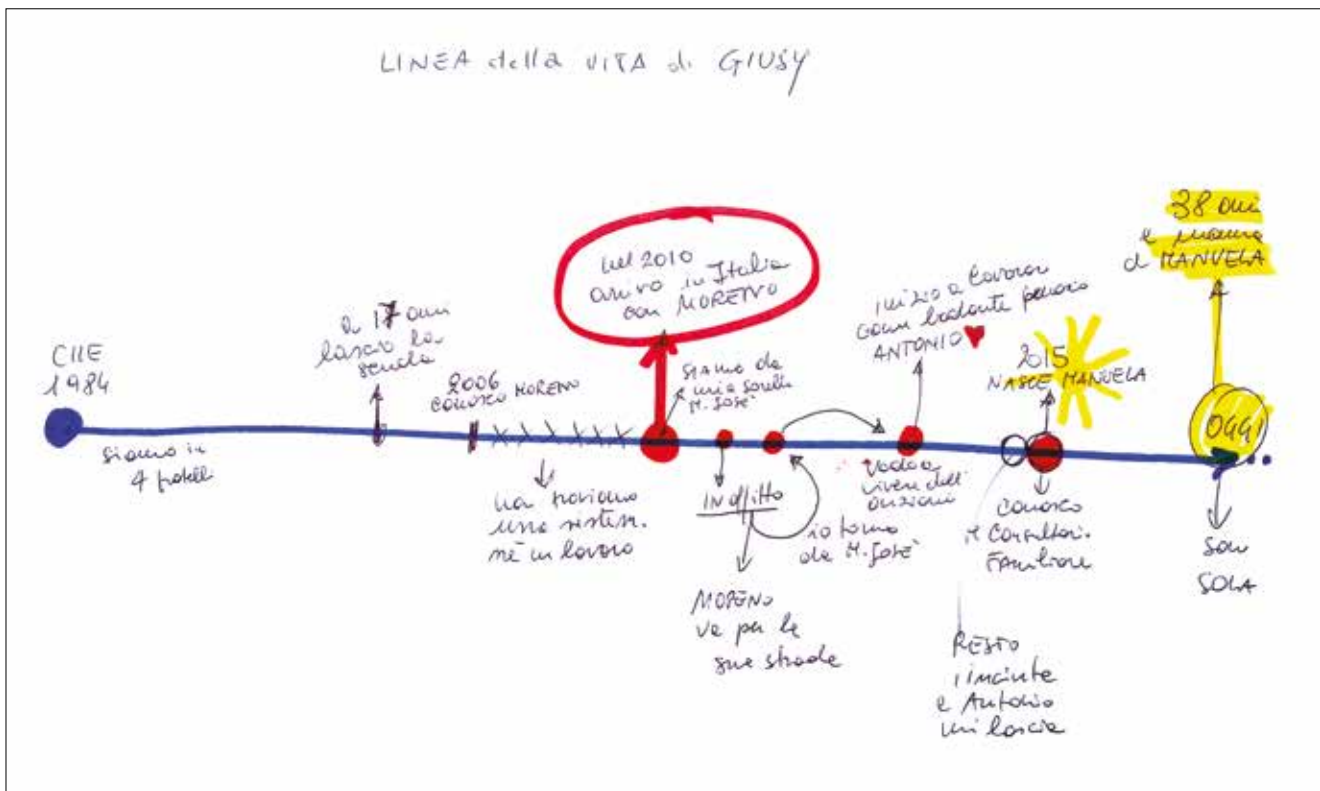 LINEA della VITA di GIUSY
CILE
1984
siamo in
4 fratelli
a 17 anni
lascio la
scuola
2006
CONOSCO MORENO
non troviamo
una sistem.
né un lavoro
nel 2010
arrivo in Italia
con MORENO
siamo da
mia sorella
M. Josè
IN affitto
MORENO
va per le
sue strade
io torno
da M. Josè
vado a
vivere dall'
anziani
inizio a lavorare
come badante
ANTONIO
RESTO
incinta
e Antonio
mi lascia
2015
NASCE MANUELA
conosco
il Consultori.
FAMILIARE
OGGI
38 anni
e mamma
di MANUELA
SON
SOLA